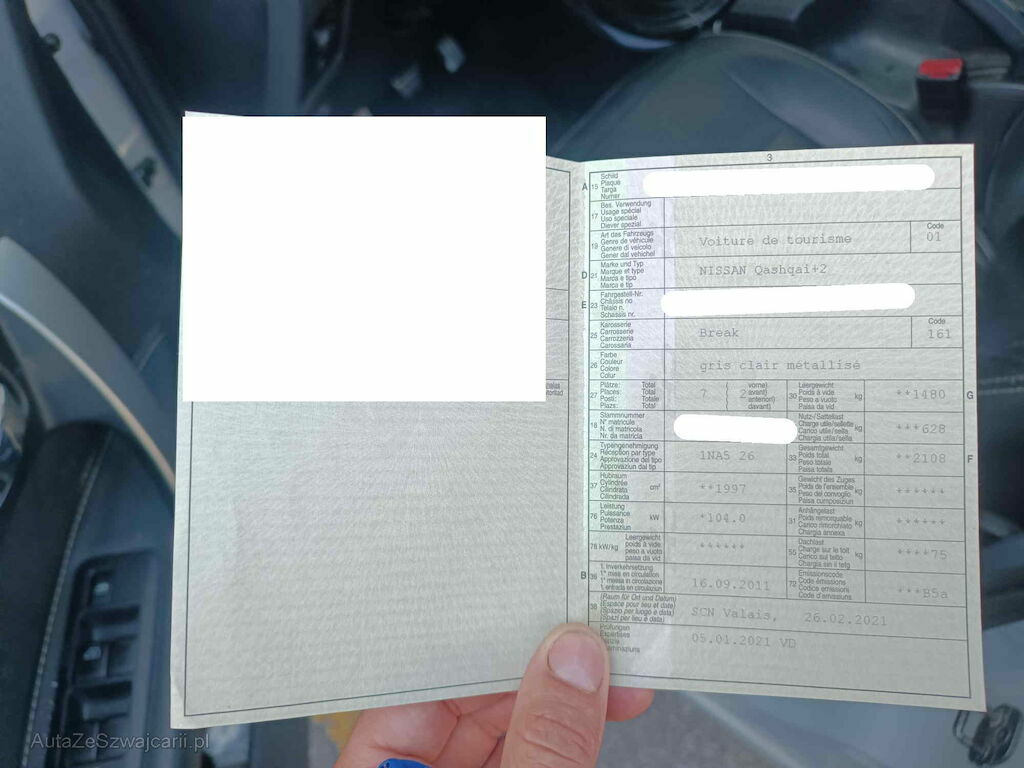 3
A 15 Schild
Plaque
Targa
Numer
17 Bes. Verwendung
Usage spécial
Uso speciale
Diever spezial
19 Art des Fahrzeugs
Genre de véhicule
Genere di veicolo
Gener dal vehichel
Voiture de tourisme
Code
01
D 21 Marke und Typ
Marque et type
Marca e tipo
Marca e tip
NISSAN Qashqai+2
E 23 Fahrgestell-Nr.
Châssis no
Telaio n.
Schassis nr.
25 Karosserie
Carrosserie
Carrozzeria
Carossaria
Break
Code
161
26 Farbe
Couleur
Colore
Colur
gris clair métallisé
27 Plätze: Total
Places: Total
Posti: Totale
Plazs: Total
7 ( 2 vorne)
avant)
anteriori)
davant)
30 Leergewicht
Poids à vide
Peso a vuoto
Paisa da vid
kg **1480 G
18 Stammnummer
N° matricule
N. di matricola
Nr. da matricla
Nutz-/Sattellast
Charge utile/sellette
Carico utile/sella
Chargia utila/sella
kg ***628
24 Typengenehmigung
Réception par type
Approvazione del tipo
Approvaziun dal tip
1NA5 26
33 Gesamtgewicht
Poids total
Peso totale
Paisa totala
kg **2108 F
37 Hubraum
Cylindrée
Cilindrata
Cilindrada
cm³ **1997
35 Gewicht des Zuges
Poids de l'ensemble
Peso del convoglio
Paisa cumposiziun
kg ******
76 Leistung
Puissance
Potenza
Prestaziun
kW *104.0
31 Anhängelast
Poids remorquable
Carico rimorchiato
Chargia annexa
kg ******
78 kW/kg Leergewicht
poids à vide
peso a vuoto
paisa da vid
******
55 Dachlast
Charge sur le toit
Carico sul tetto
Chargia sin il tetg
kg ****75
B 36 1. Inverkehrsetzung
1re mise en circulation
1a messa in circolazione
1. entrada en circulaziun
16.09.2011
72 Emissionscode
Code émissions
Codice emissioni
Code d'emissiuns
***B5a
38 (Raum für Ort und Datum)
(Espace pour lieu et date)
(Spazio per luogo e data)
(Spazi per lieu e data)
SCN Valais, 26.02.2021
Prüfungen
Expertises
05.01.2021 VD
AutaZeSzwajcarii.pl